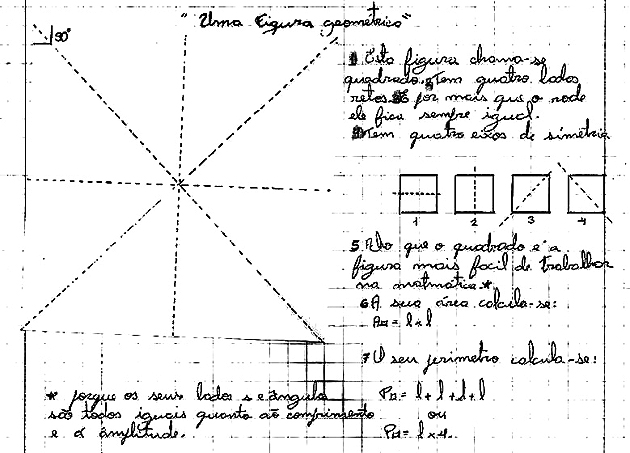 "Uma Figura geométrica"
90°
Esta figura chama-se
quadrado. Tem quatro lados
retos. E por mais que o rode
ele fica sempre igual.
Tem quatro eixos de simetria
1 2 3 4
5 Acho que o quadrado é a
figura mais facil de trabalhar
na matmática.*
6 A sua área calcula-se:
A□ = l × l
7 O seu perimetro calcula-se:
P□ = l + l + l + l
ou
P□ = l × 4.
* porque os seus lados s e ângulos
são todos iguais quanto ao comprimento
e à amplitude.